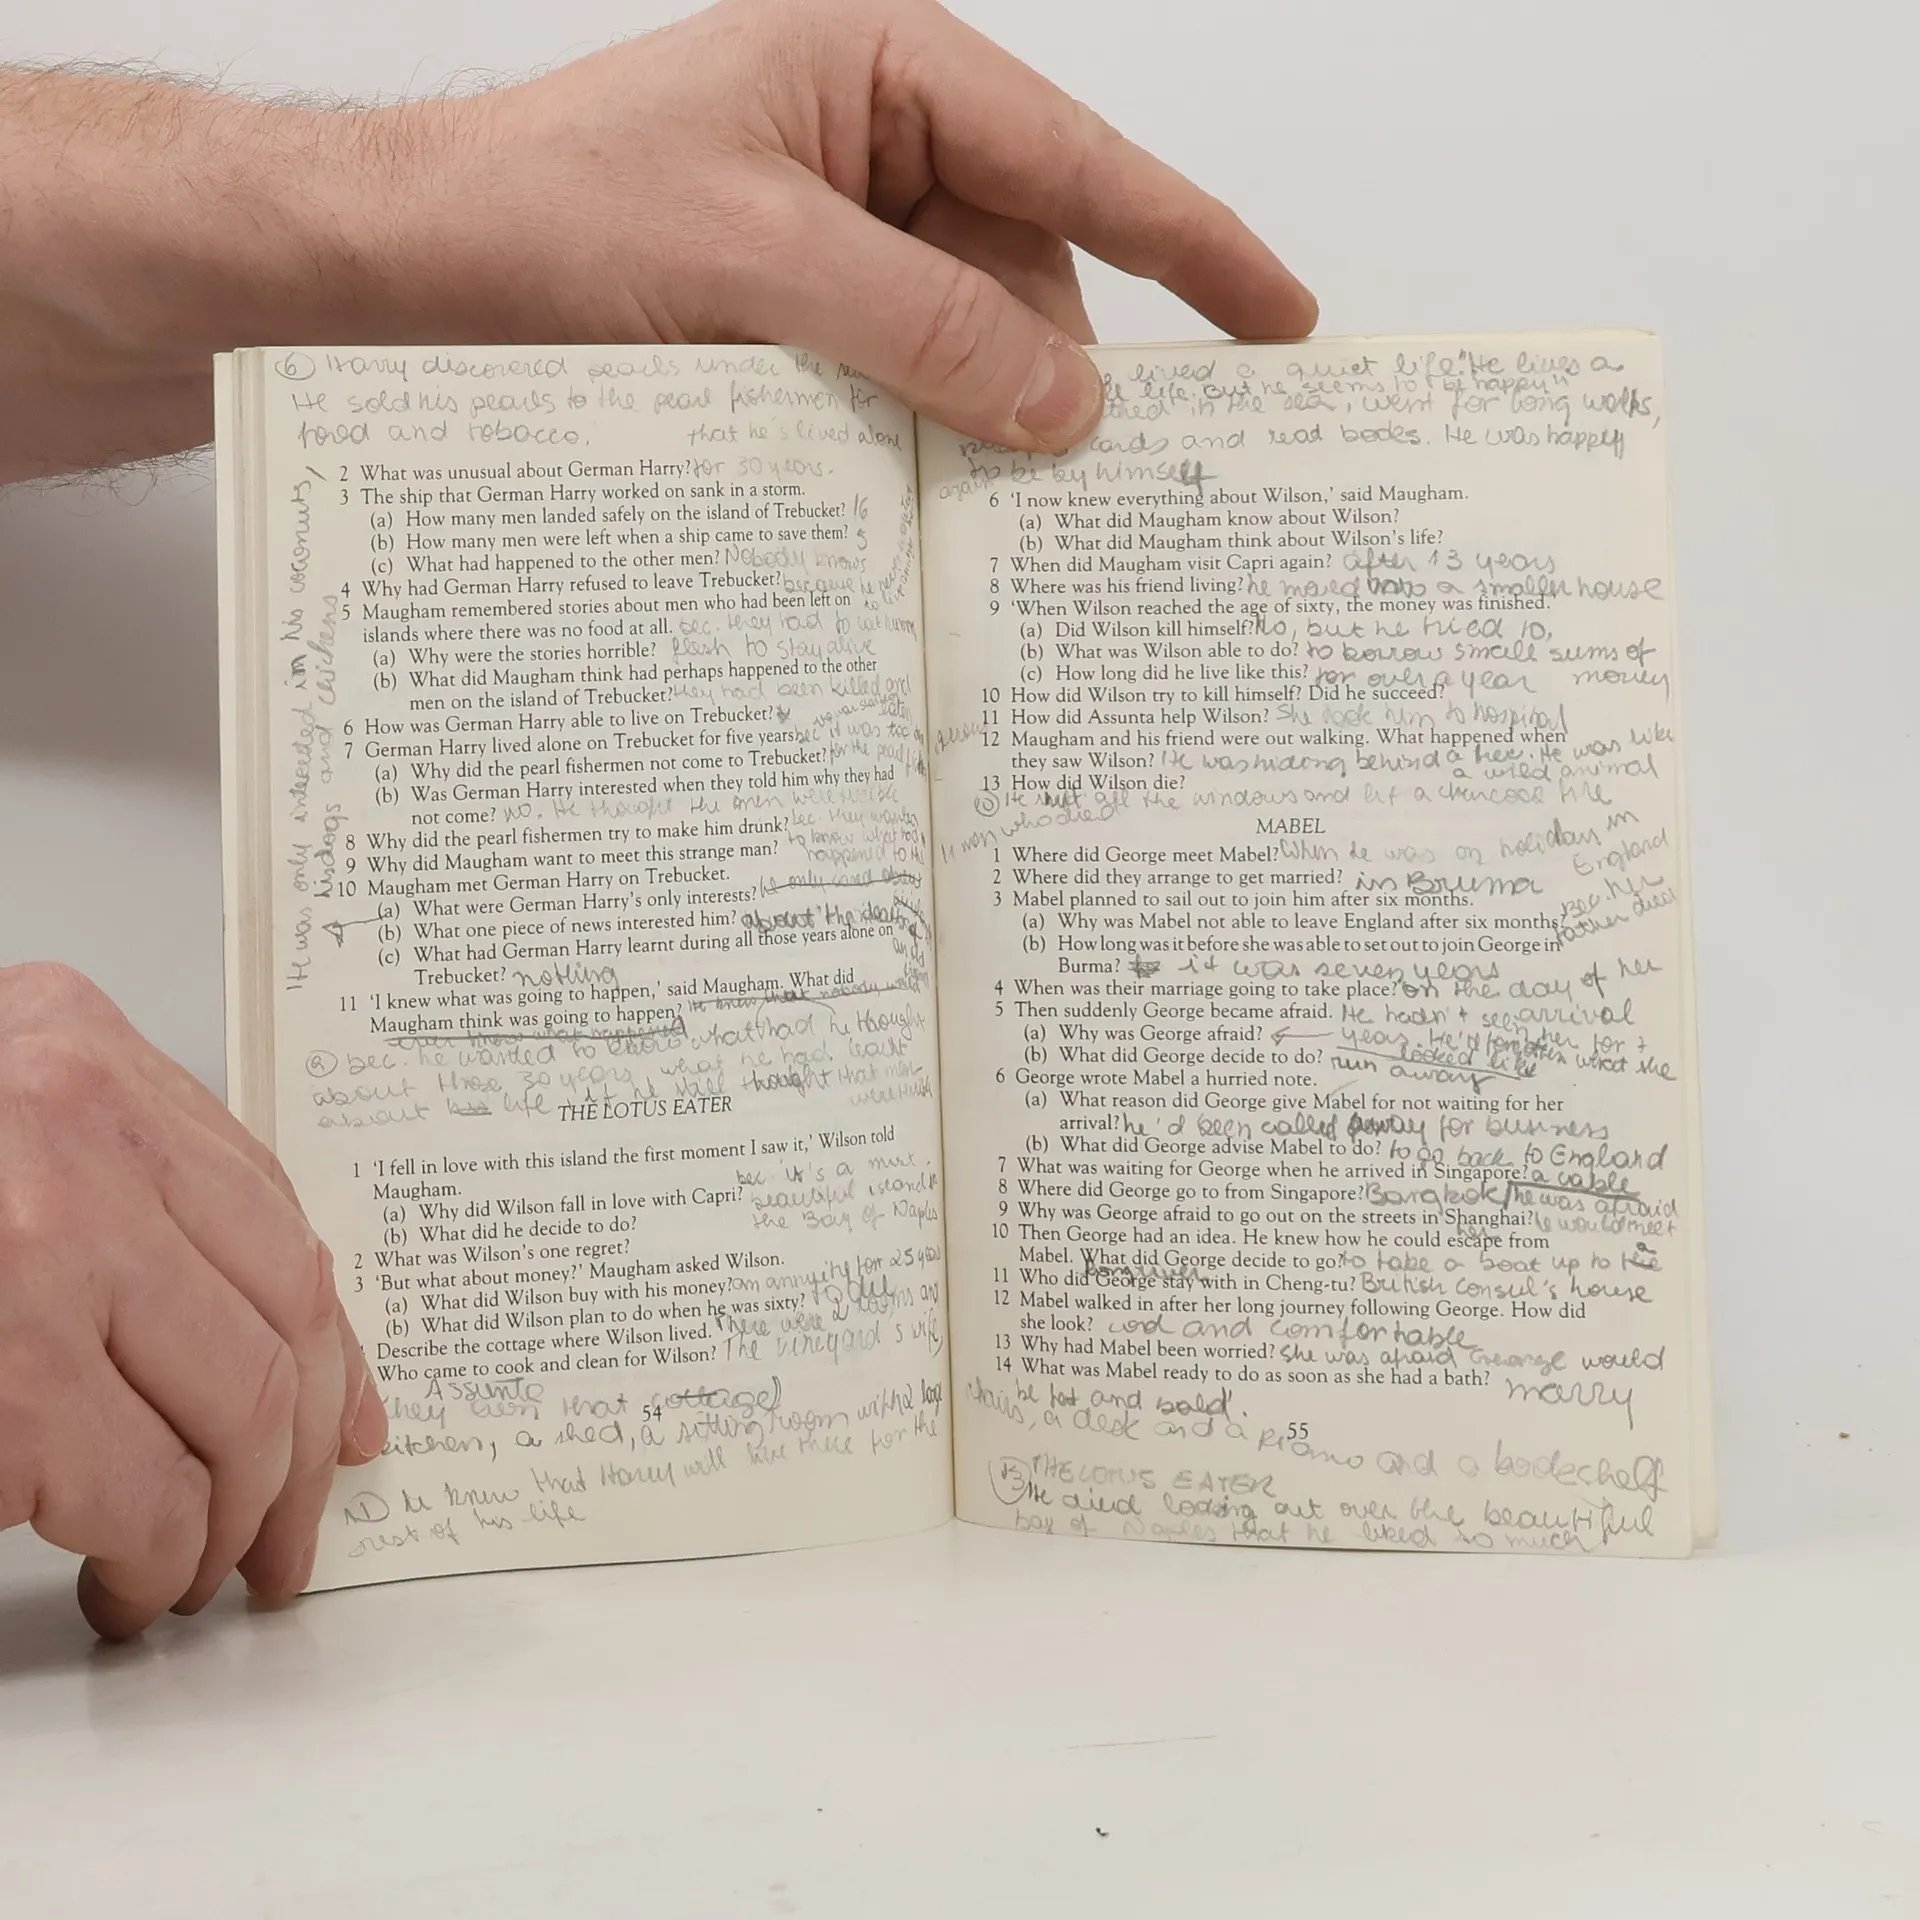 6 Harry discovered pearls under the
He sold his pearls to the pearl fishermen for
food and tobacco.
that he's lived alone
2 What was unusual about German Harry? for 30 years.
3 The ship that German Harry worked on sank in a storm.
(a) How many men landed safely on the island of Trebucket? 16
(b) How many men were left when a ship came to save them? 5
(c) What had happened to the other men? Nobody knows
4 Why had German Harry refused to leave Trebucket? because he
5 Maugham remembered stories about men who had been left on
islands where there was no food at all. bec. they had to eat human
(a) Why were the stories horrible? flesh to stay alive
(b) What did Maugham think had perhaps happened to the other
men on the island of Trebucket? they had been killed and
eaten
6 How was German Harry able to live on Trebucket?
7 German Harry lived alone on Trebucket for five years bec. it was too
(a) Why did the pearl fishermen not come to Trebucket? for the pearl
(b) Was German Harry interested when they told him why they had
not come? no. He thought the men were
8 Why did the pearl fishermen try to make him drunk? bec. they wanted
to know what had
9 Why did Maugham want to meet this strange man? happened to the
10 Maugham met German Harry on Trebucket.
(a) What were German Harry's only interests? he only cared about
(b) What one piece of news interested him? about the death
(c) What had German Harry learnt during all those years alone on
Trebucket? nothing
11 'I knew what was going to happen,' said Maugham. What did
Maugham think was going to happen? He knew that nobody would
ever know what happened
He was only interested in his coconuts,
his dogs and chickens
9 bec. he wanted to know what had he thought
about those 30 years, what he had learnt
about his life, if he still thought that men
THE LOTUS EATER
1 'I fell in love with this island the first moment I saw it,' Wilson told
Maugham.
bec. it's a most
(a) Why did Wilson fall in love with Capri? beautiful island in
(b) What did he decide to do? the Bay of Naples
2 What was Wilson's one regret?
3 'But what about money?' Maugham asked Wilson.
(a) What did Wilson buy with his money? an annuity for 25 years
(b) What did Wilson plan to do when he was sixty? to die
Describe the cottage where Wilson lived. There were 2 rooms and
Who came to cook and clean for Wilson? The vineyard's wife,
Assunta
that cottage)
54
kitchen, a shed, a sitting room with 2 large
11 he knew that Harry will live there for the
rest of his life
lived a quiet life. "He lives a
life. But he seems to be happy"
in the sea, went for long walks,
cards and read books. He was happy
to be by himself
again
6 'I now knew everything about Wilson,' said Maugham.
(a) What did Maugham know about Wilson?
(b) What did Maugham think about Wilson's life?
7 When did Maugham visit Capri again? after 13 years
8 Where was his friend living? he moved into a smaller house
9 'When Wilson reached the age of sixty, the money was finished.'
(a) Did Wilson kill himself? No, but he tried to,
(b) What was Wilson able to do? to borrow small sums of
money
(c) How long did he live like this? for over a year
10 How did Wilson try to kill himself? Did he succeed?
11 How did Assunta help Wilson? She took him to hospital
12 Maugham and his friend were out walking. What happened when
they saw Wilson? He was hiding behind a tree. He was like
a wild animal
13 How did Wilson die?
10 He shut all the windows and lit a charcoal fire
MABEL
1 Where did George meet Mabel? When he was on holidays in
England
2 Where did they arrange to get married? in Bruma
3 Mabel planned to sail out to join him after six months.
(a) Why was Mabel not able to leave England after six months? Bec. her
father died
(b) How long was it before she was able to set out to join George in
Burma? it was seven years
4 When was their marriage going to take place? on the day of her
arrival
5 Then suddenly George became afraid. He hadn't seen her for 7
(a) Why was George afraid? years. He'd forgotten what she
looked like
(b) What did George decide to do? run away
6 George wrote Mabel a hurried note.
(a) What reason did George give Mabel for not waiting for her
arrival? he'd been called away for business
(b) What did George advise Mabel to do? to go back to England
7 What was waiting for George when he arrived in Singapore? a cable
8 Where did George go to from Singapore? Bangkok
9 Why was George afraid to go out on the streets in Shanghai? he was afraid
he would meet
her
10 Then George had an idea. He knew how he could escape from
Mabel. What did George decide to go? to take a boat up to the
11 Who did George stay with in Cheng-tu? British consul's house
12 Mabel walked in after her long journey following George. How did
she look? cool and comfortable
13 Why had Mabel been worried? She was afraid George would
be fat and bald.
14 What was Mabel ready to do as soon as she had a bath? marry
chairs, a desk and a piano and a bookshelf
55
13 THE LOTUS EATER
He died looking out over the beautiful
bay of Naples that he liked so much